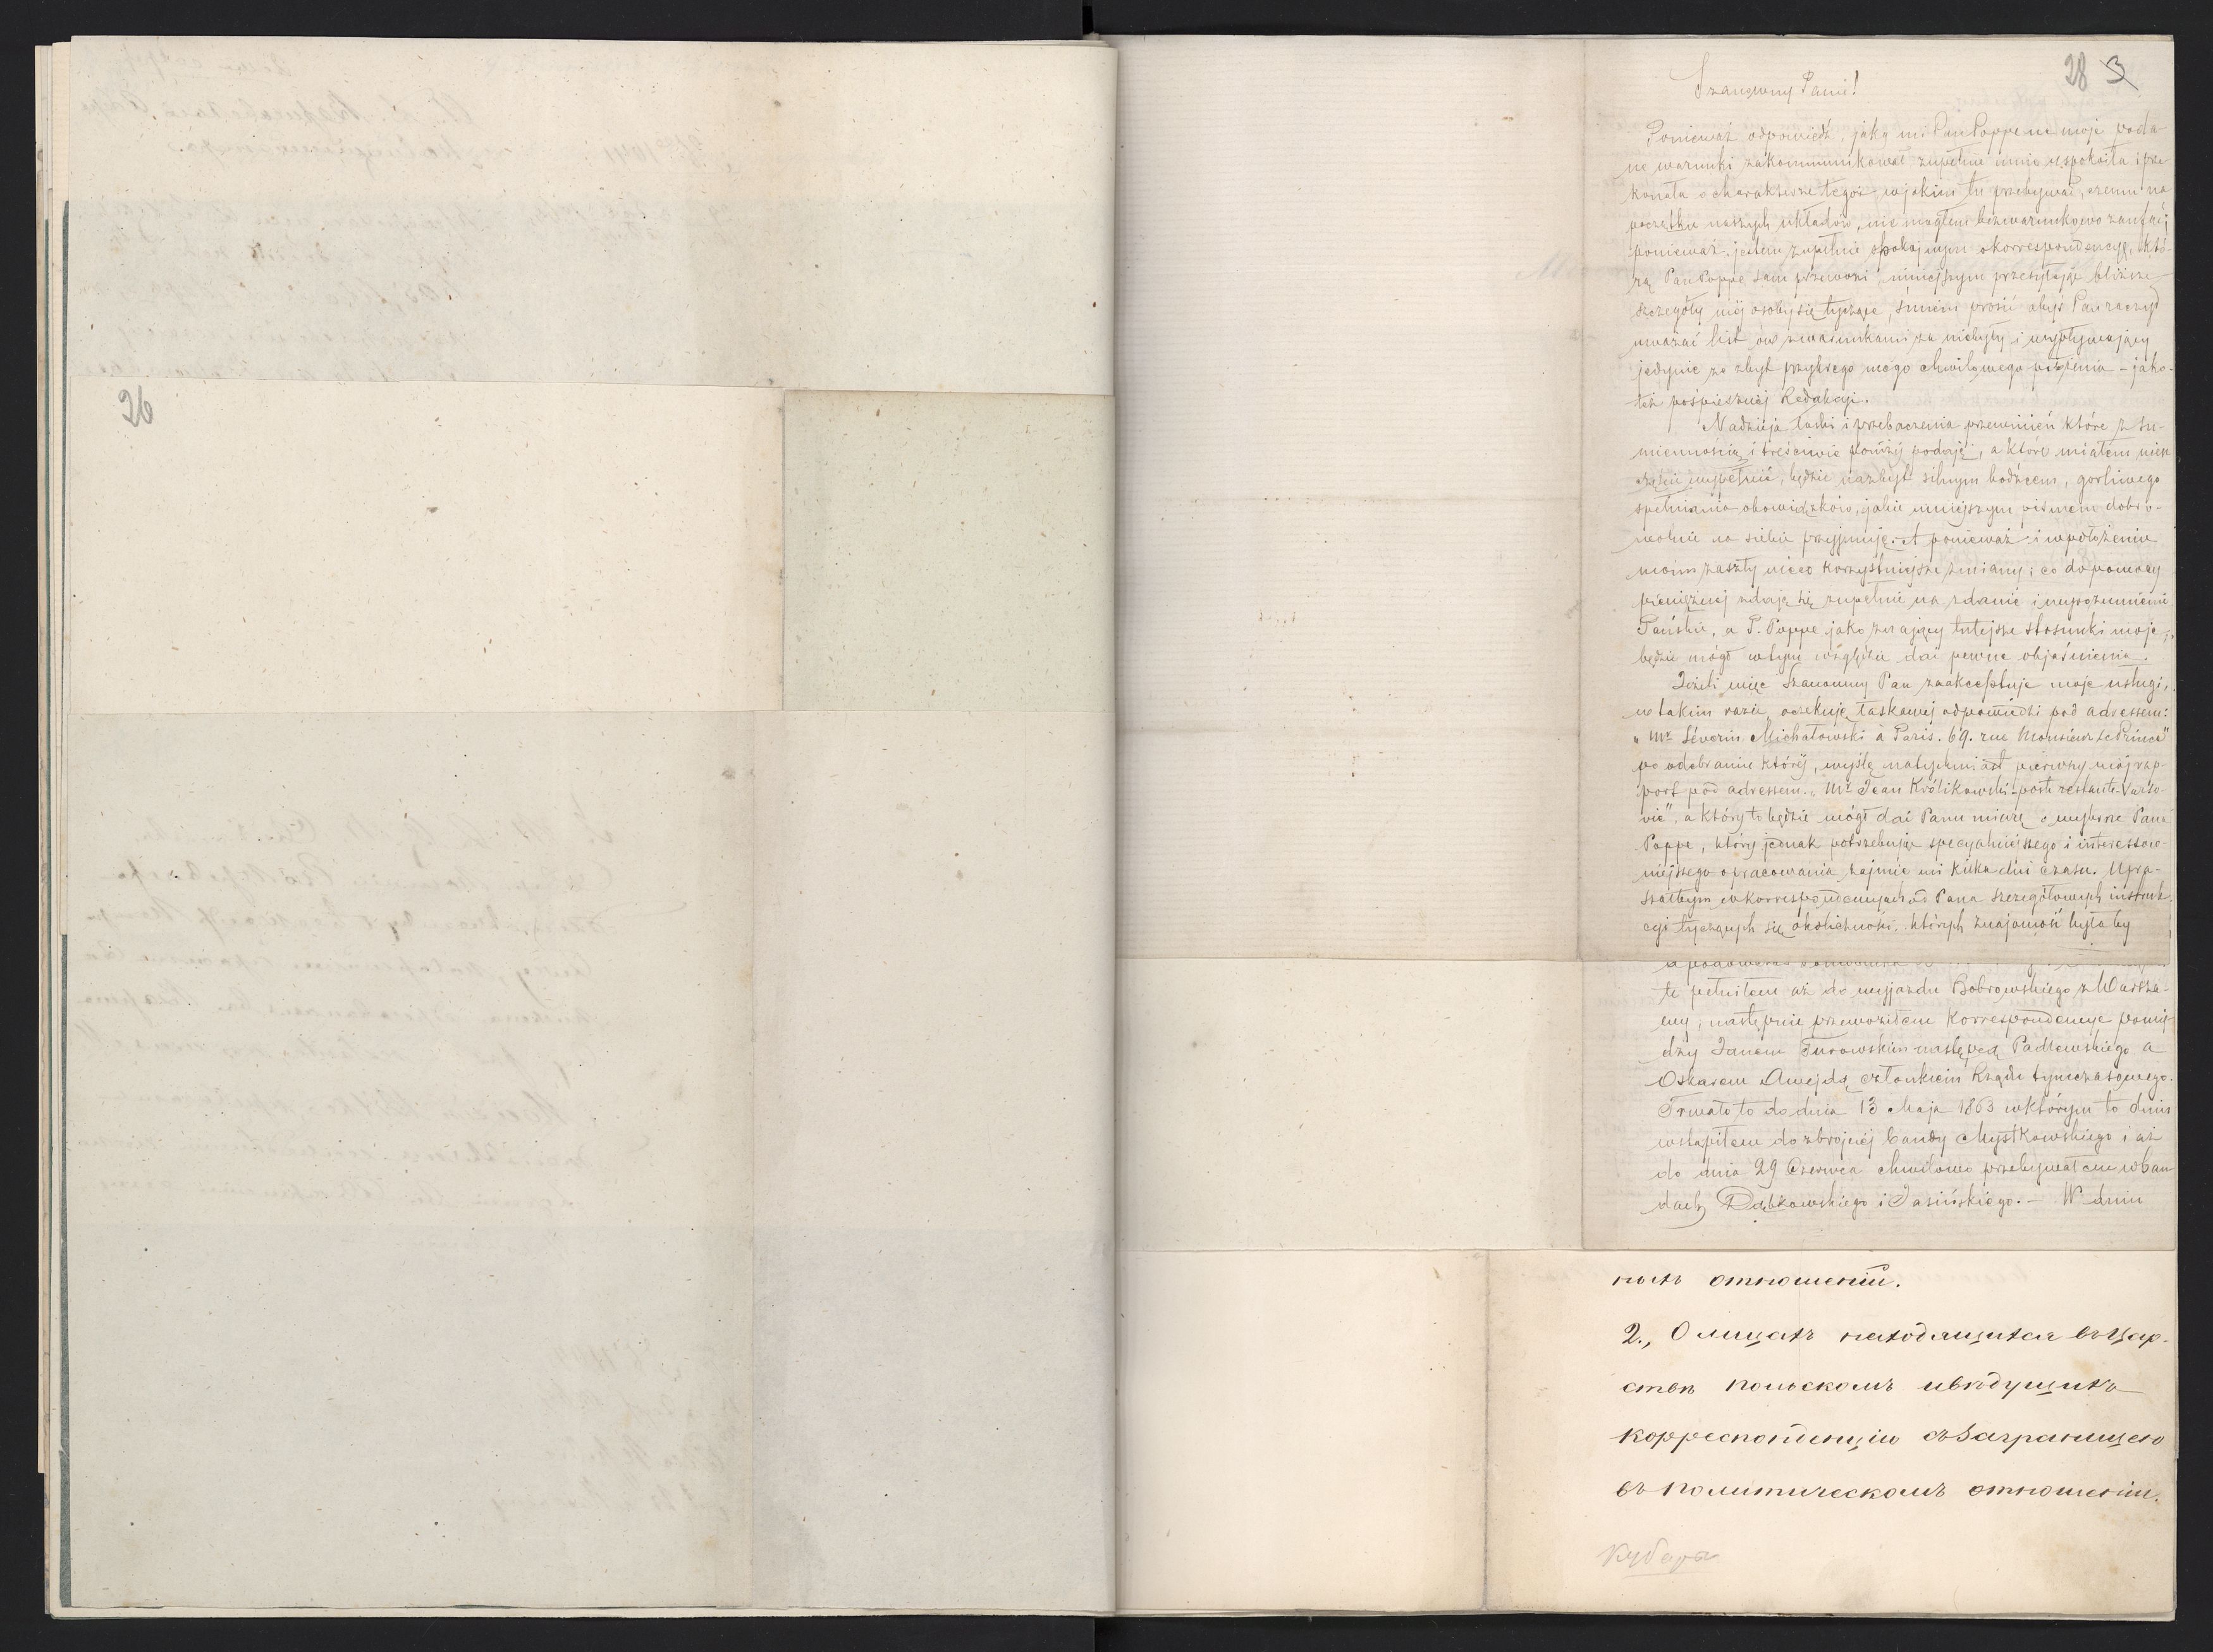 26
28 3
Szanowny Panie!
Ponieważ odpowiedź, jaką mi Pan Poppe na moje poda-
ne warunki zakommunikował zupełnie mnie uspokoiła i prze-
konała o charakterze tegoż, w jakim tu przebywać, czemu na
początku naszych układów, nie mogłem bezwarunkowo zaufać;
ponieważ jestem zupełnie spokojnym o korrespondencyę, któ-
rą Pan Poppe sam przewozi niniejszym przesyłając bliższe
szczegóły méj osoby się tyczące, śmiem prosić abyś Pan raczył
uważać list ów z warunkami za niebyły i wypływający
jedynie ze zbyt przykrego mego chwilowego położenia – jako-
też pośpiesznéj Redakcji.
Nadzieja łaski i przebaczenia przewinień które z su-
miennością i treściwie poniżéj podaję, a które miałem nieszczęście
wypełnić, będzie nazbyt silnym bodźcem, gorliwego
spełniania obowiązków, jakie niniejszym pismem dobro-
wolnie na siebie przyjmuję. A ponieważ i w położeniu
moim zaszły nieco korzystniejsze zmiany; co do pomocy
pieniężnéj zdaję się zupełnie na zdanie i wyrozumienie
Pańskie, a P. Poppe jako znający tutejsze stosunki moje,
będzie mógł w tym względzie dać pewne objaśnienia.
Jeżeli więc Szanowny Pan zaakceptuje moje usługi,
w takim razie oczekuję łaskawéj odpowiedzi pod adressem:
„Mr Séverin Michałowski à Paris. 69. rue Monsieur le Prince"
po odebraniu któréj, wyślę natychmiast pierwszy mój rap-
port pod adressem „Mr Jean Królikowski – poste restante – Varso-
vie", a który to będzie mógł dać Panu miarę o wyborze Pana
Poppe, który jednak potrzebując specyalniejszego i interessow-
niejszego opracowania zajmie mi kilka dni czasu. Upra-
szałbym w korrespondencyach od Pana szczegółowych instruk-
cyi tyczących się okoliczności, których znajomość byłaby
te pełniłem aż do wyjazdu Bobrowskiego z Warsza-
wy; następnie przewoziłem korrespondencye pomię-
dzy Janem Turowskim następcą Padlewskiego a
Oskarem Awejdą członkiem Rządu tymczasowego.
Trwało to do dnia 13 Maja 1863 w którym to dniu
wstąpiłem do zbrojnéj bandy Mystkowskiego i aż
do dnia 29 Czerwca chwilowo przebywałem w ban-
dach Dąbkowskiego i Jasińskiego. – W dniu
номъ отношеніи.
2., О лицахъ находящихся въ Цар-
ствѣ Польскомъ и ведущихъ
корреспонденцію съ Заграницею
въ политическомъ отношеніи.